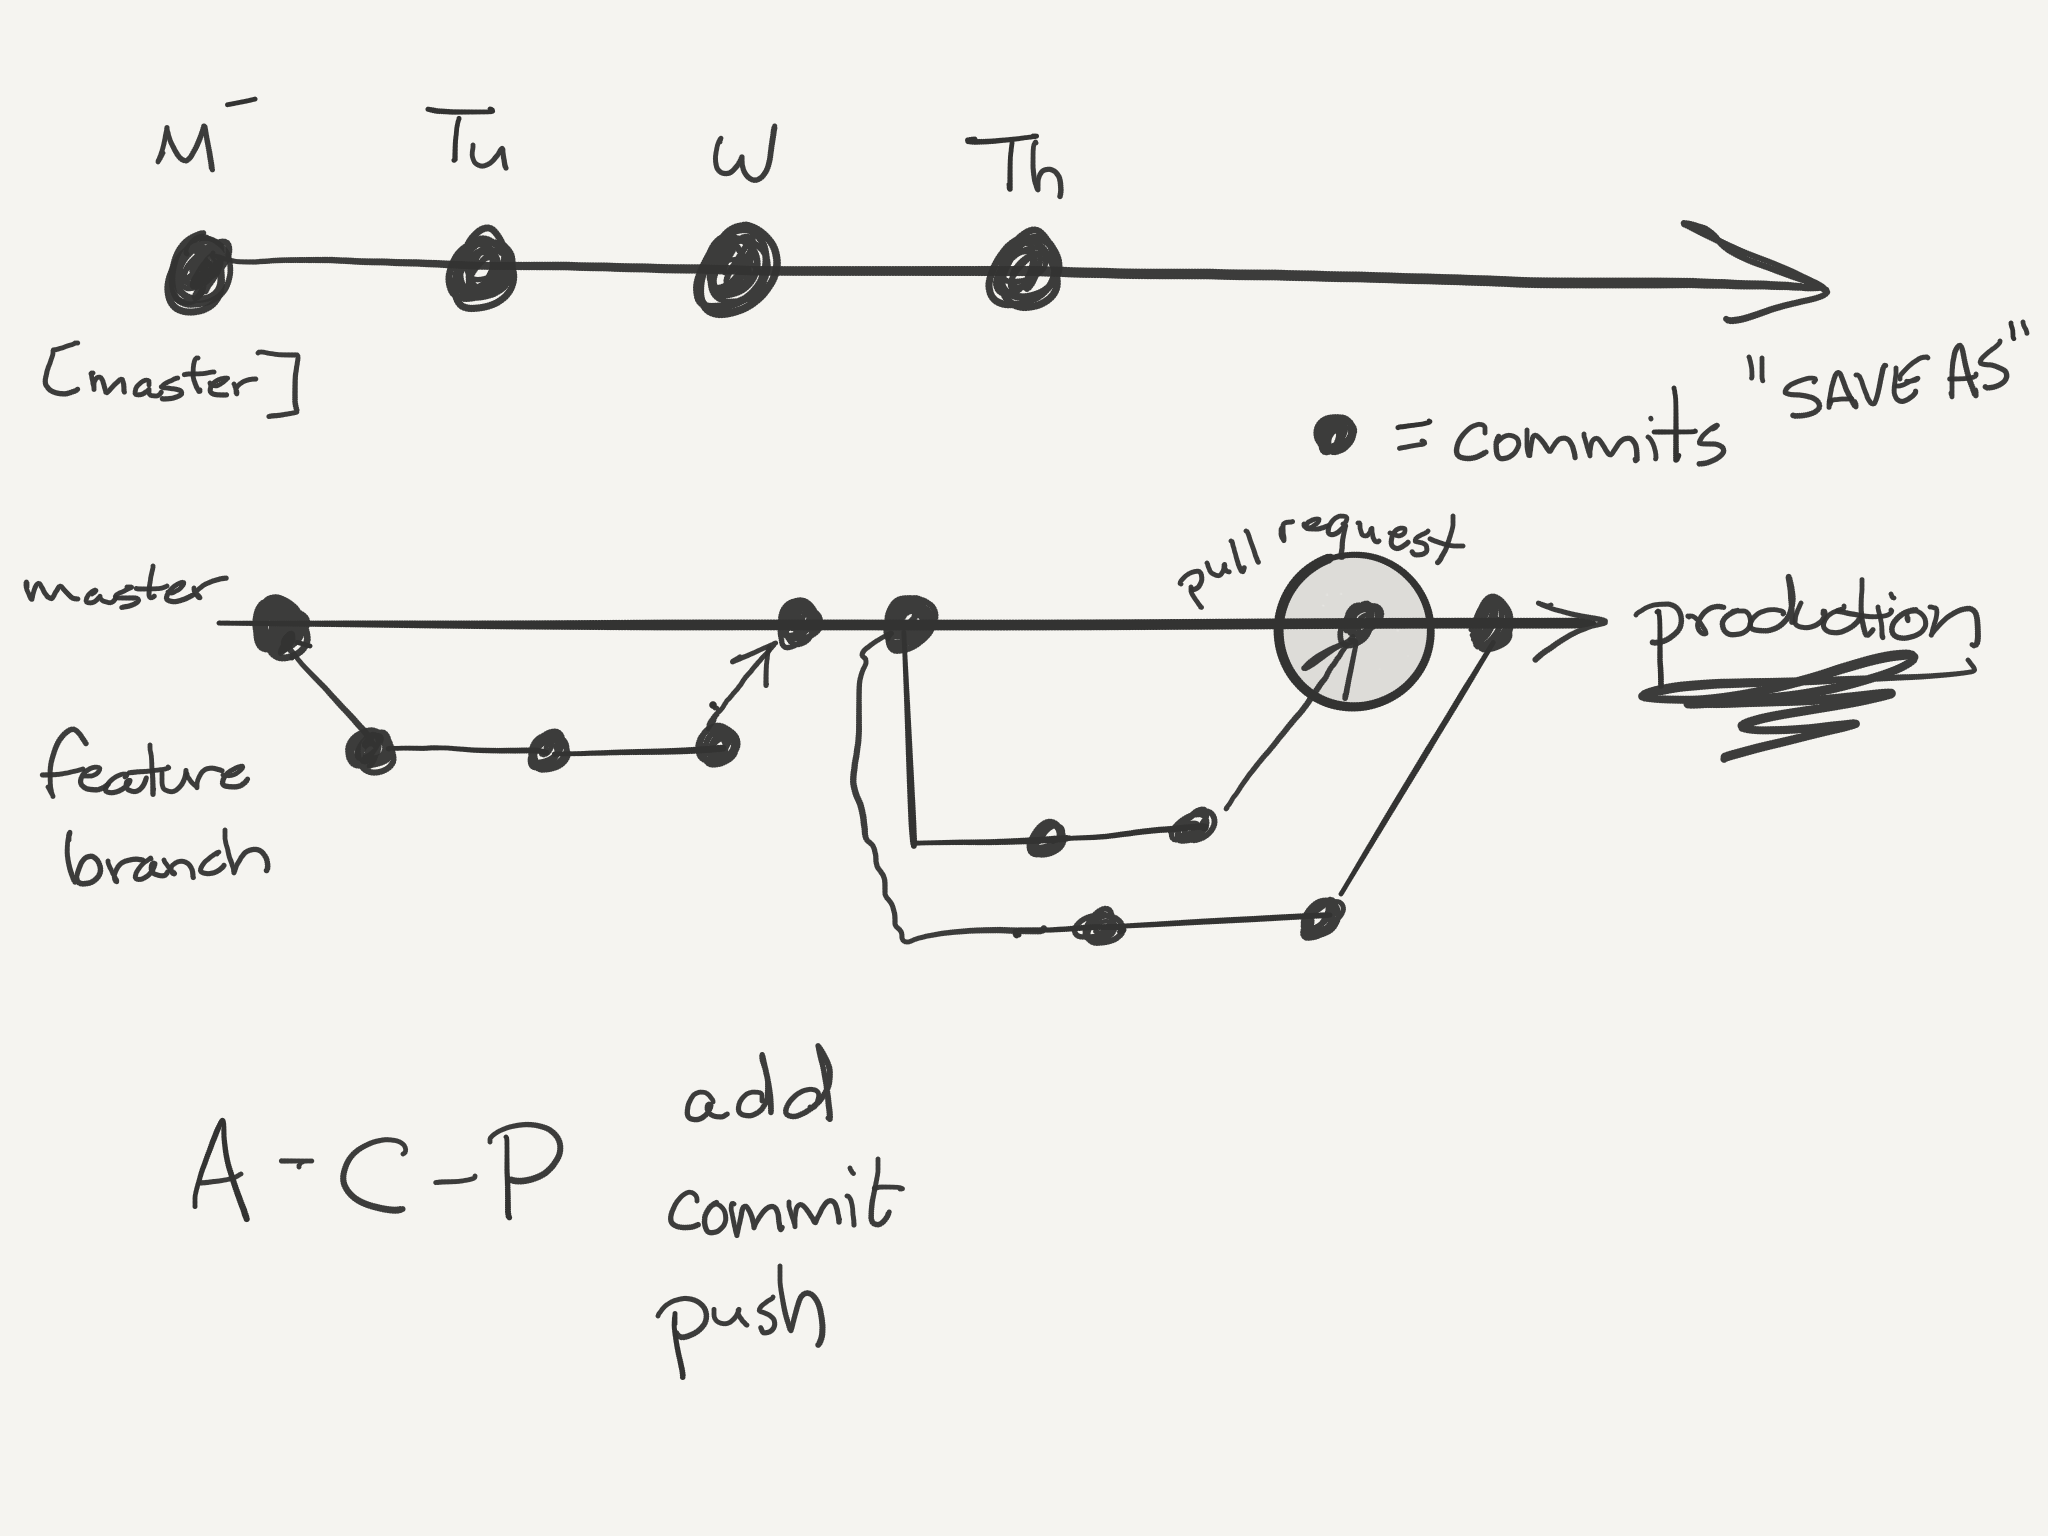 M Tu W Th
[master]
"SAVE AS"
● = commits
pull request
master
production
feature
branch
A-C-P
add
commit
push